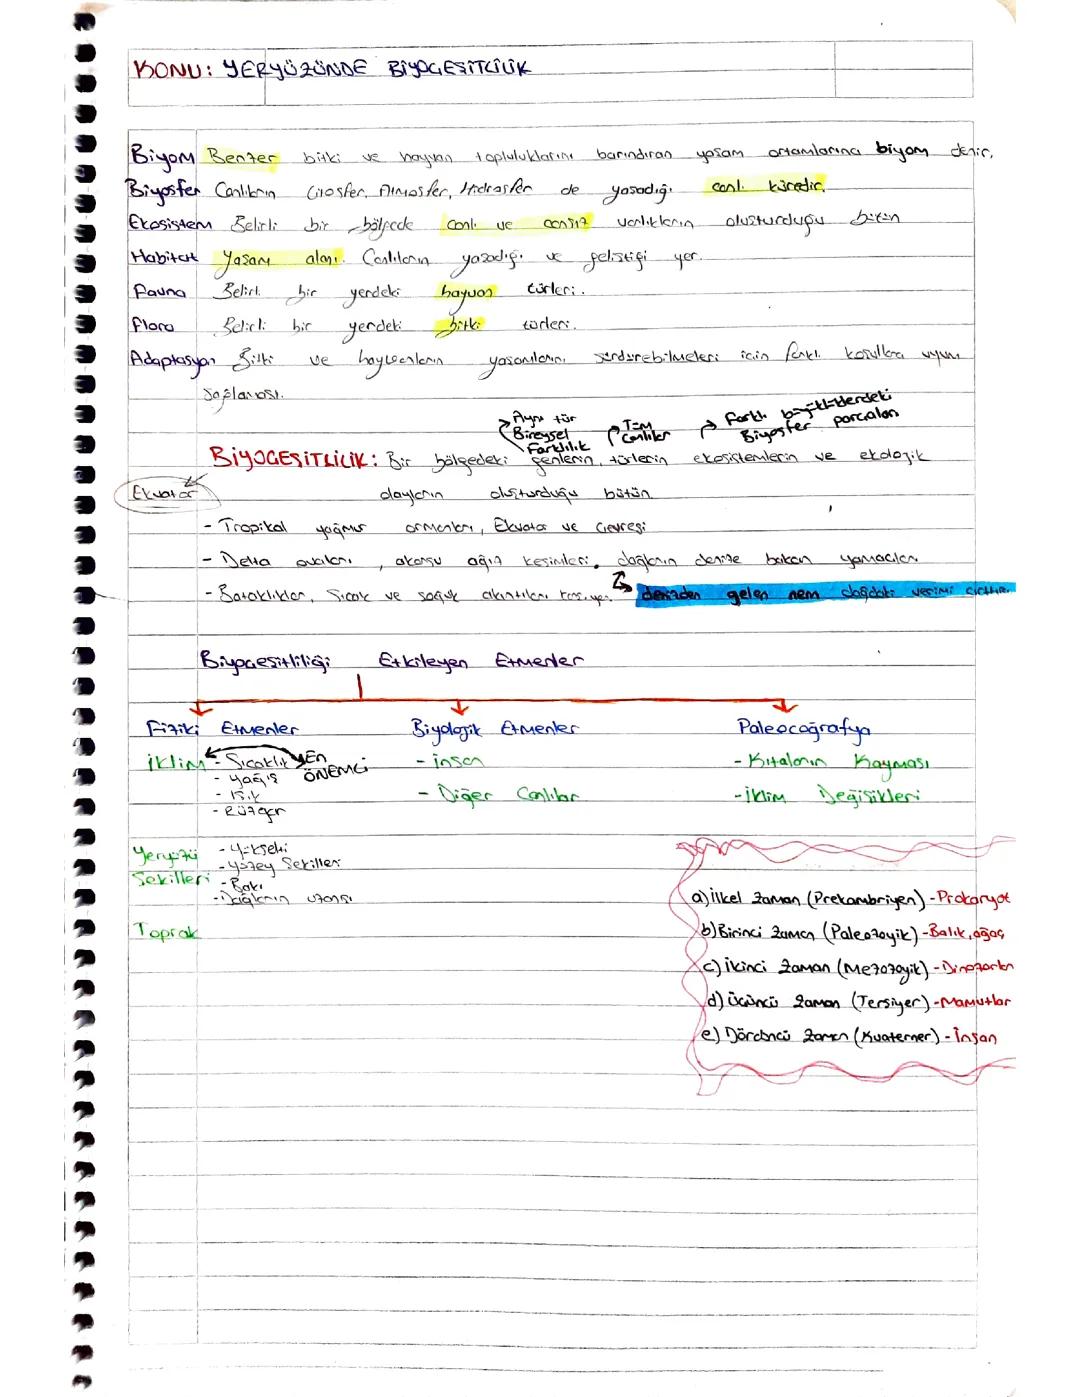 KONU: YERYÜZÜNDE BİYOÇEŞİTLİLİK
Biyom Benzer bitki ve hayvan topluluklarını barındıran yaşam ortamlarına biyom denir.
Biyosfer Canlıların Litosfer, Atmosfer, Hidrosfer de yaşadığı canlı küredir.
Ekosistem Belirli bir bölgede canlı ve cansız varlıkların oluşturduğu bütün
Habitat Yaşam alanı. Canlıların yaşadığı ve geliştiği yer.
Fauna Belirli bir yerdeki hayvan türleri.
Flora Belirli bir yerdeki bitki türleri.
Adaptasyon Bitki ve hayvanların yaşamlarını sürdürebilmeleri için farklı koşullara uyum
sağlaması.
Aynı tür Bireysel Farklılık
Tüm Canlılar
Farklı büyüklüklerdeki Biyosfer parçaları
BİYOÇEŞİTLİLİK: Bir bölgedeki genlerin, türlerin ekosistemlerin ve ekolojik
Ekvator olayların oluşturduğu bütün
- Tropikal yağmur ormanları, Ekvator ve Çevresi
- Delta ovaları, akarsu ağız kesimleri, dağların denize bakan yamaçları
- Bataklıklar, Sıcak ve soğuk akıntıları denizden gelen nem dağdaki verimi arttırır.
Biyoçeşitliliği Etkileyen Etmenler
Fiziki Etmenler Biyolojik Etmenler Paleocoğrafya
İklim - Sıcaklık EN ÖNEMLİ - insan - Kıtaların Kayması
- yağış
- Işık - Diğer Canlılar - İklim Değişikleri
- Rüzgar
Yeryüzü Şekilleri - Yükselti
- Yüzey Şekilleri
- Bakı
- Dağların uzanışı
Toprak
a) İlkel Zaman (Prekambriyen) - Prokaryot
b) Birinci Zaman (Paleozoyik) - Balık, ağaç
c) İkinci Zaman (Mezozoyik) - Dinozorlar
d) Üçüncü Zaman (Tersiyer) - Mamutlar
e) Dördüncü Zaman (Kuaterner) - İnsan